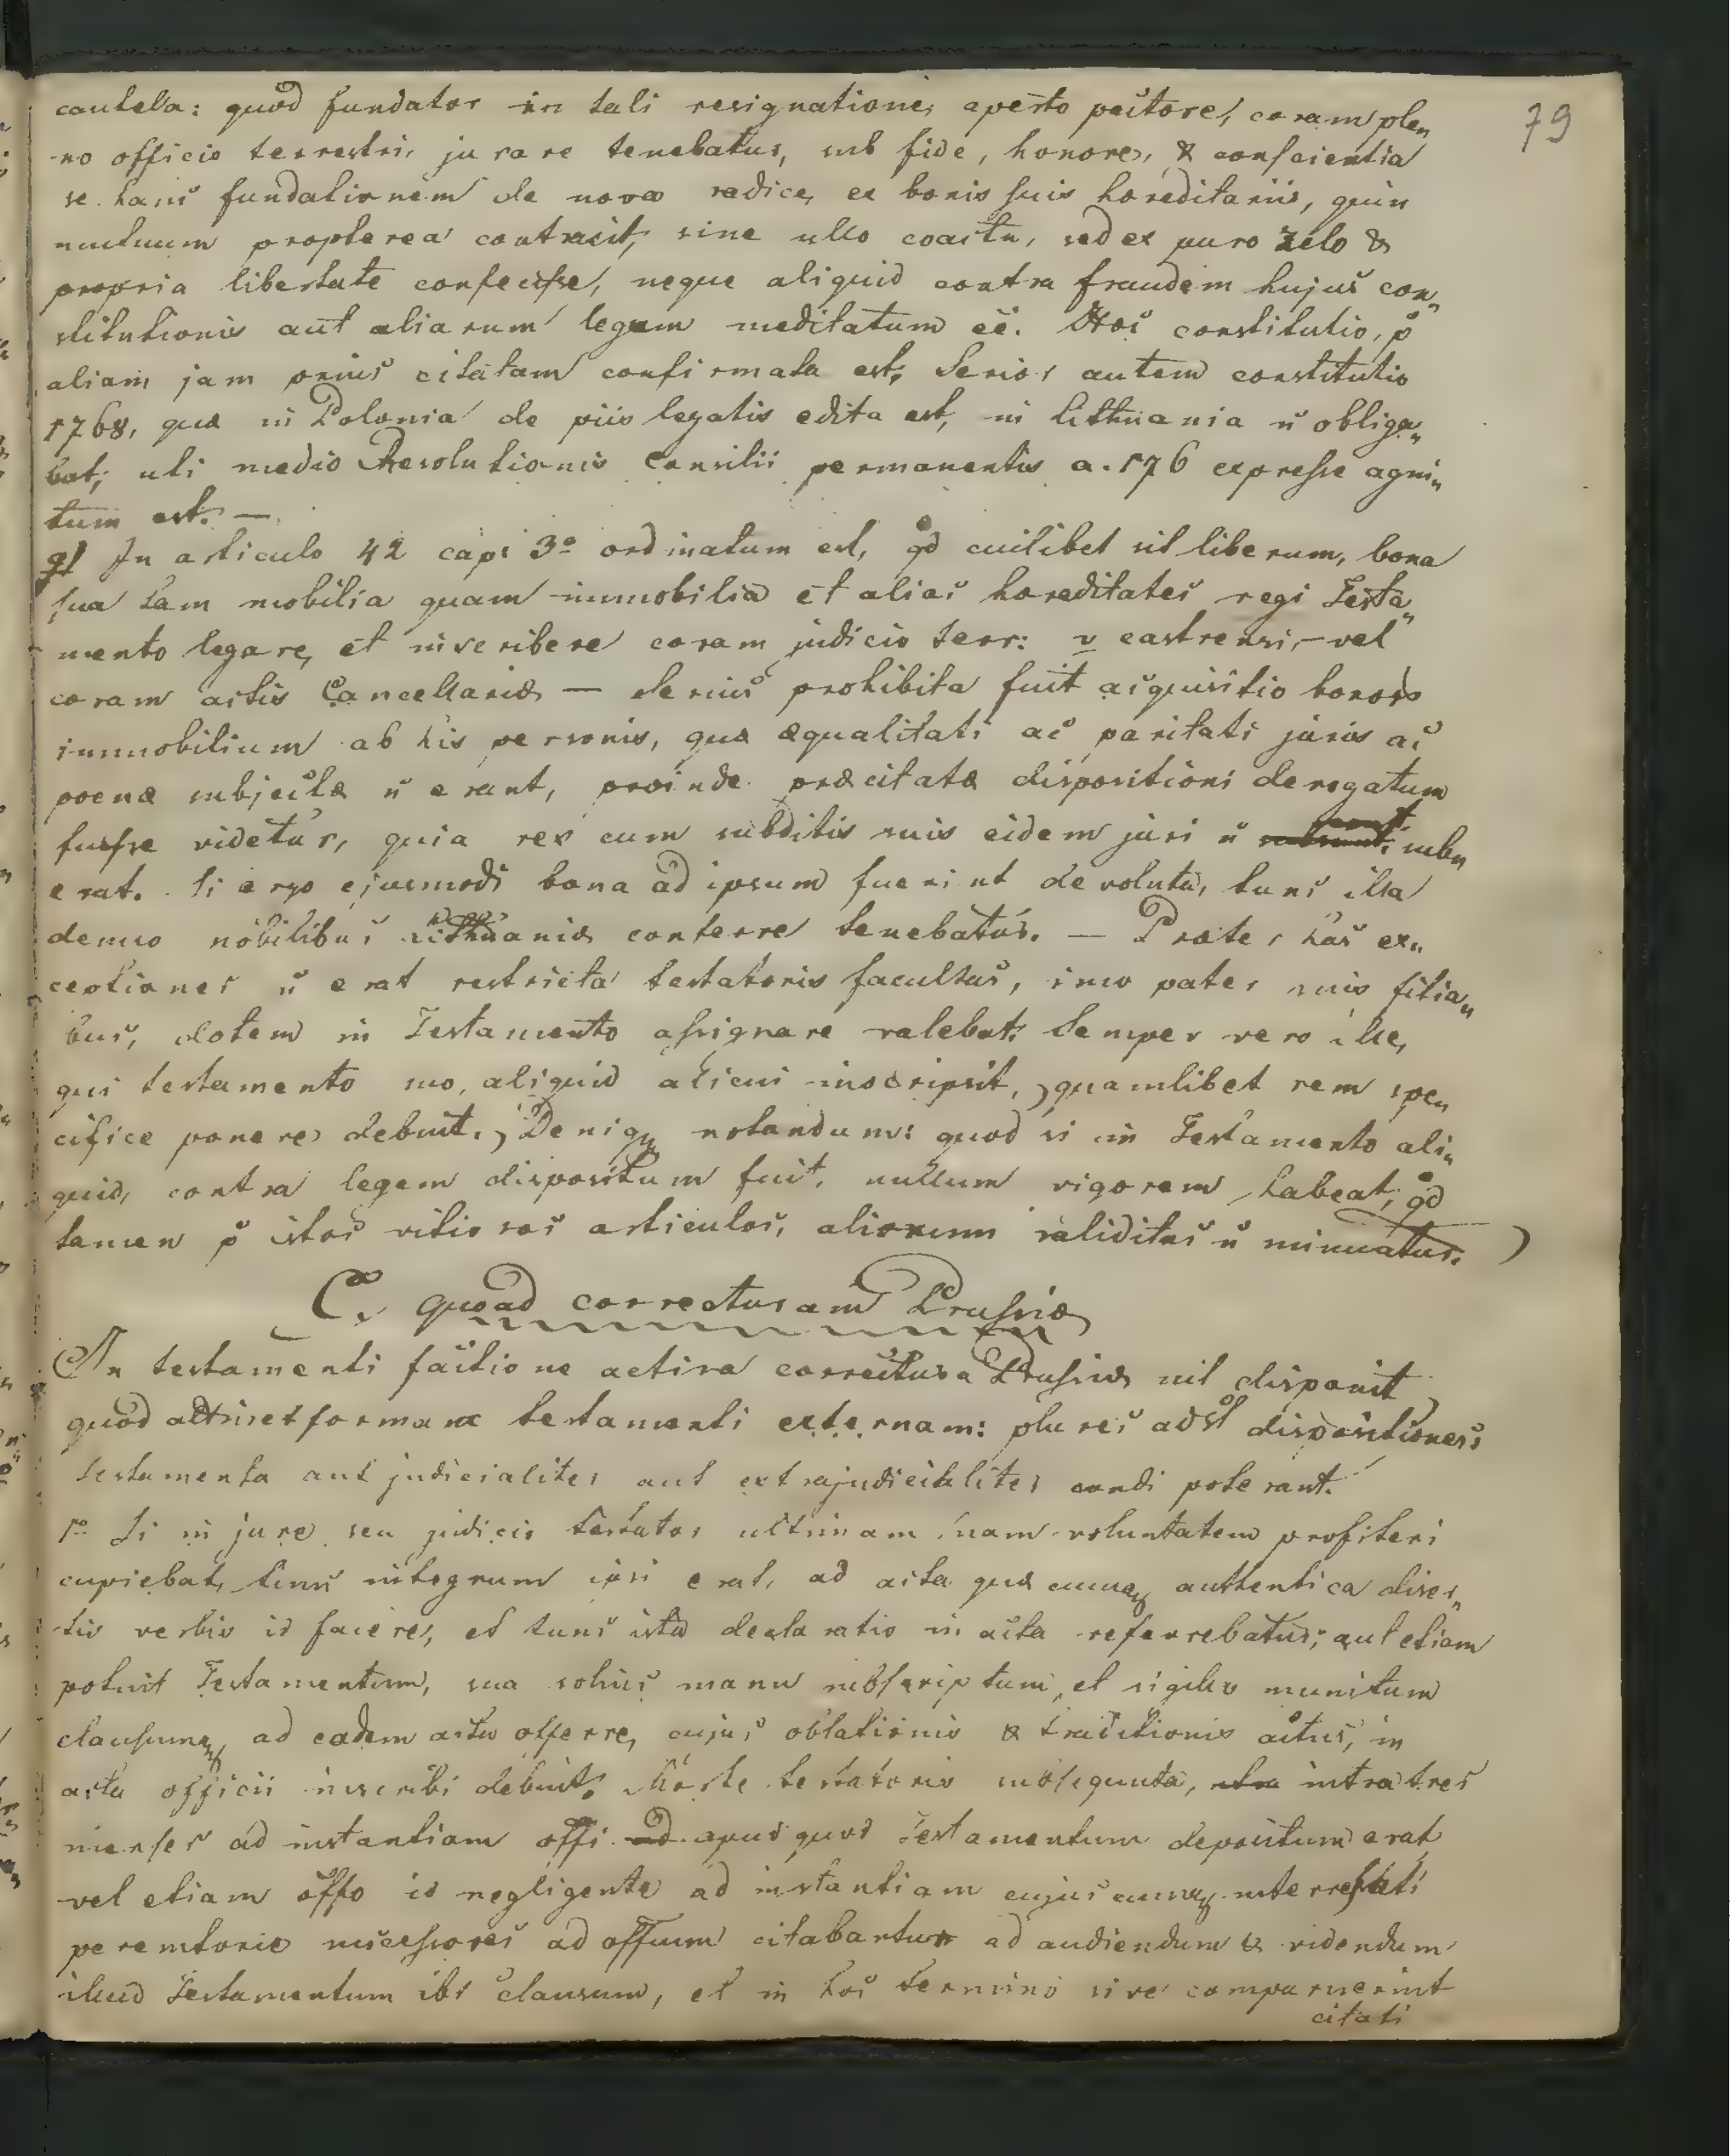 79
cautela: quod fundator in tali resignatione, aperto pectore, coram ple„
no officio terrestri, jurare tenebatur, sub fide, honore, & conscientia
se hanc fundationem de nova radice, ex bonis suis haereditariis, quin
mutuum propterea contraxit, sine ullo coactu, sed ex puro zelo &
propria libertate confecisse, neque aliquid contra fraudem hujus con„
stitutionis aut aliarum legum meditatum eē. Haec constitutio, p̊
aliam jam prius citatam confirmata est, Serior autem constitutio
1768, quae in Polonia de piis legatis edita est, in Lithuania n̄ obliga„
bat, uti medio Resolutionis Consilii permanentis a. 176 expresse agni„
tum est. —
g) In articulo 42 capi 3º ordinatum est, q̊d cuilibet sit liberum, bona
sua tam mobilia quam immobilia et alias haereditates regi Testa„
mento legare, et inscribere coram judicio terr: v castrensi, – vel
coram actis Cancellariae — Serius prohibita fuit acquisitio bonor
immobilium ab his personis, quae aequalitati ac paritati juris ac
poenae subjectae n̄ erant, proinde praecitatae dispositioni derogatum
fuisse videtur, quia rex cum subditis suis eidem juri n̄ sub„
erat. Si ergo ejusmodi bona ad ipsum fuerint devoluta, tunc illa
denuo nobilibus Lithuaniae conferre tenebatur. — Praeter has ex„
ceptiones n̄ erat restricta testatoris facultas, imo pater suis filia„
bus, dotem in Testamento assignare valebat. Semper vero ille,
qui testamento suo, aliquid alicui inscripsit, quamlibet rem spe„
cifice ponere debuit. Deniq notandum: quod si in Testamento ali„
quid, contra legem dispositum fuit, nullum vigorem habeat, q̊d
tamen p̊ istos vitiosos articulos, aliorum validitas n̄ minuatur.
C. quoad correcturam Prussiae
In testamenti factione activa correctura Prussiae nil disponit
quod attinet formam testamenti externam: plures adst dispositiones
testamenta aut judicialiter aut extrajudicialiter condi poterant.
1º Si in jure seu judicio testator ultimam suam voluntatem profiteri
cupiebat, tunc integrum ipsi erat, ad acta quaecunq authentica diser„
tis verbis id facere, et tunc ista declaratio in acta referrebatur; aut etiam
potuit Testamentum, sua solius manu subscriptum, et sigillo munitum
clausumq ad eadem acta offerre, cujus oblationis & traditionis actus, in
acta officii inscribi debuit. Morte testatoris insequuta, intra tres
menses ad instantiam offi apud quod Testamentum depositum erat
vel etiam offo id negligente ad instantiam cujuscunq interessati
peremtorie successores ad offium citabantur ad audiendum & videndum
illud Testamentum ibi clausum, et in hoc termino sive comparuerint
citati